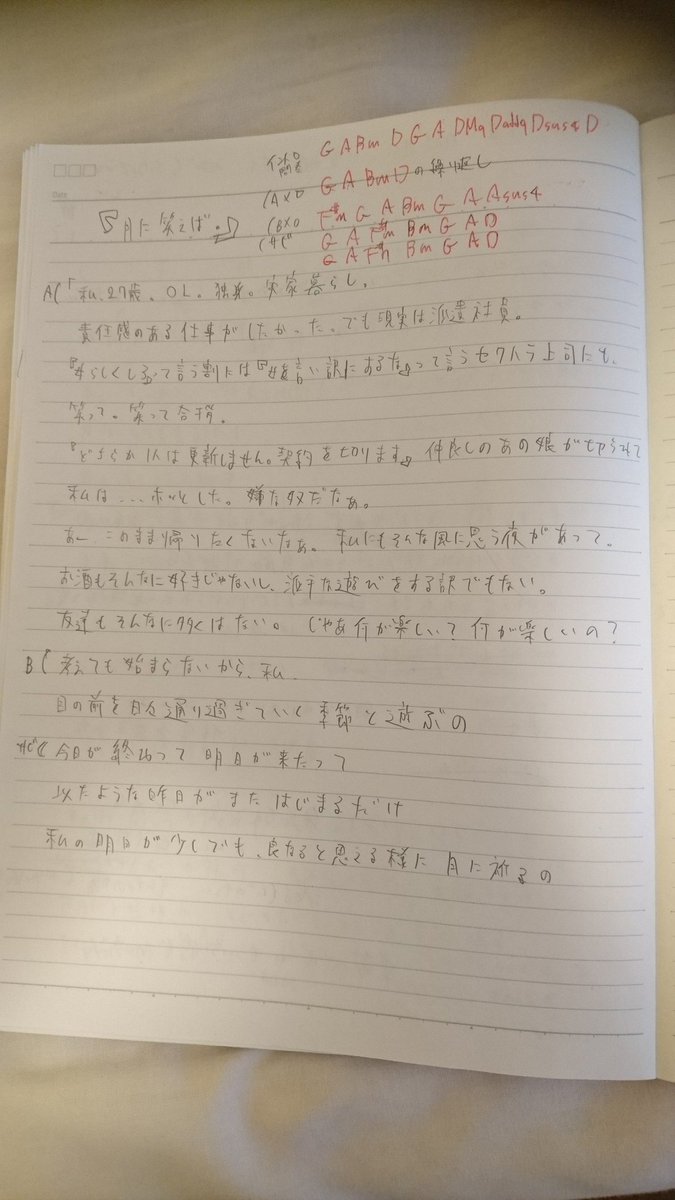 イントロ 間奏 G A Bm D G A DM9 Dadd9 Dsus4 D
(Aメロ G A Bm D の繰り返し
(Bメロ F#m G A Bm G A Asus4
(サビ G A F#m Bm G A D
G A F#m Bm G A D
『月に笑えば。』
A(「私、27歳。OL。独身。実家暮らし。
責任感のある仕事がしたかった、でも現実は派遣社員。
『女らしくしろ』って言う割には『女を言い訳にするな』って言うセクハラ上司にも、
笑って。笑って合槌。
『どちらか1人は更新しません。契約を切ります』 仲良しのあの娘が切られて
私は...ホッとした。嫌な奴だなぁ。
あー このまま帰りたくないなぁ。 私にもそんな風に思う夜があって。
お酒もそんなに好きじゃないし、派手な遊びをする訳でもない。
友達もそんなに多くはない。 じゃあ何が楽しい？何が楽しいの？
B( 考えても始まらないから、私、
目の前を日々通り過ぎていく季節と遊ぶの
サビ( 今日が終わって 明日が来たって
似たような昨日が またはじまるだけ
私の明日が少しでも、良なると思える様に 月に祈るの